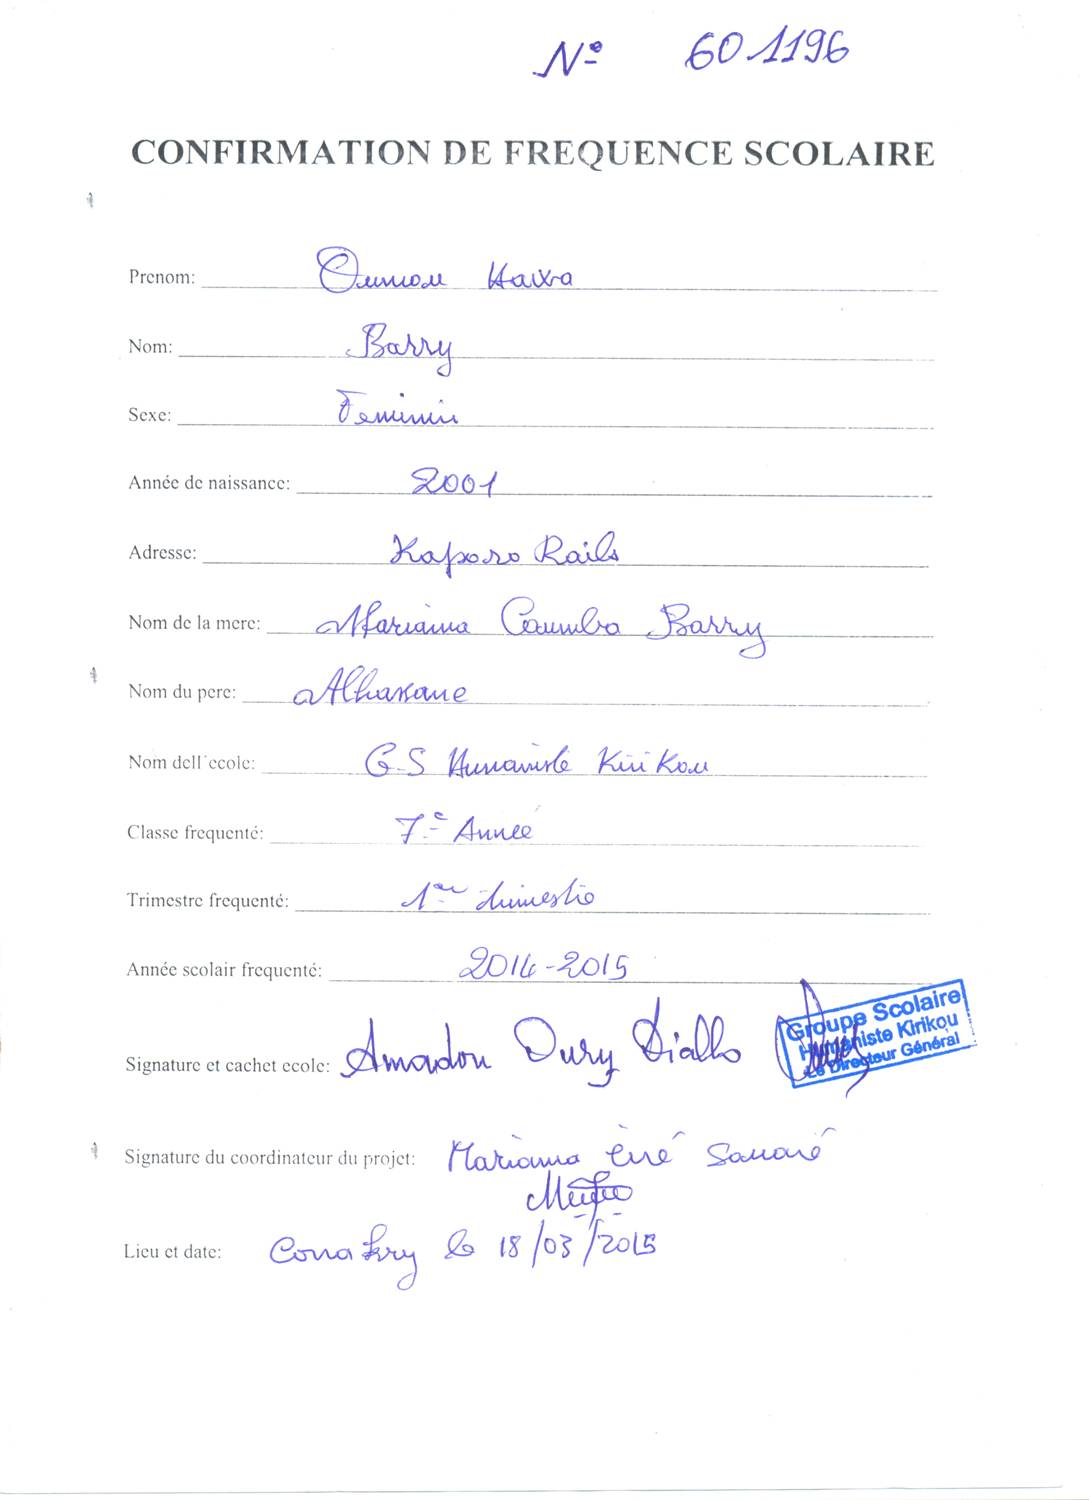 Nº 601196
CONFIRMATION DE FREQUENCE SCOLAIRE
Prenom: Oumou Hawa
Nom: Barry
Sexe: Feminin
Année de naissance: 2001
Adresse: Kaporo Rails
Nom de la mere: Mariama Coumba Barry
Nom du pere: Alhassane
Nom dell´ecole: G-S Humaniste Kirikou
Classe frequenté: 7e Année
Trimestre frequenté: 1er trimestre
Année scolair frequenté: 2014-2015
Signature et cachet ecole: Amadou Oury Diallo
Groupe Scolaire
Humaniste Kirikou
Le Directeur Général
Signature du coordinateur du projet: Mariama Ciré
Lieu et date: Conakry le 18/03/2015